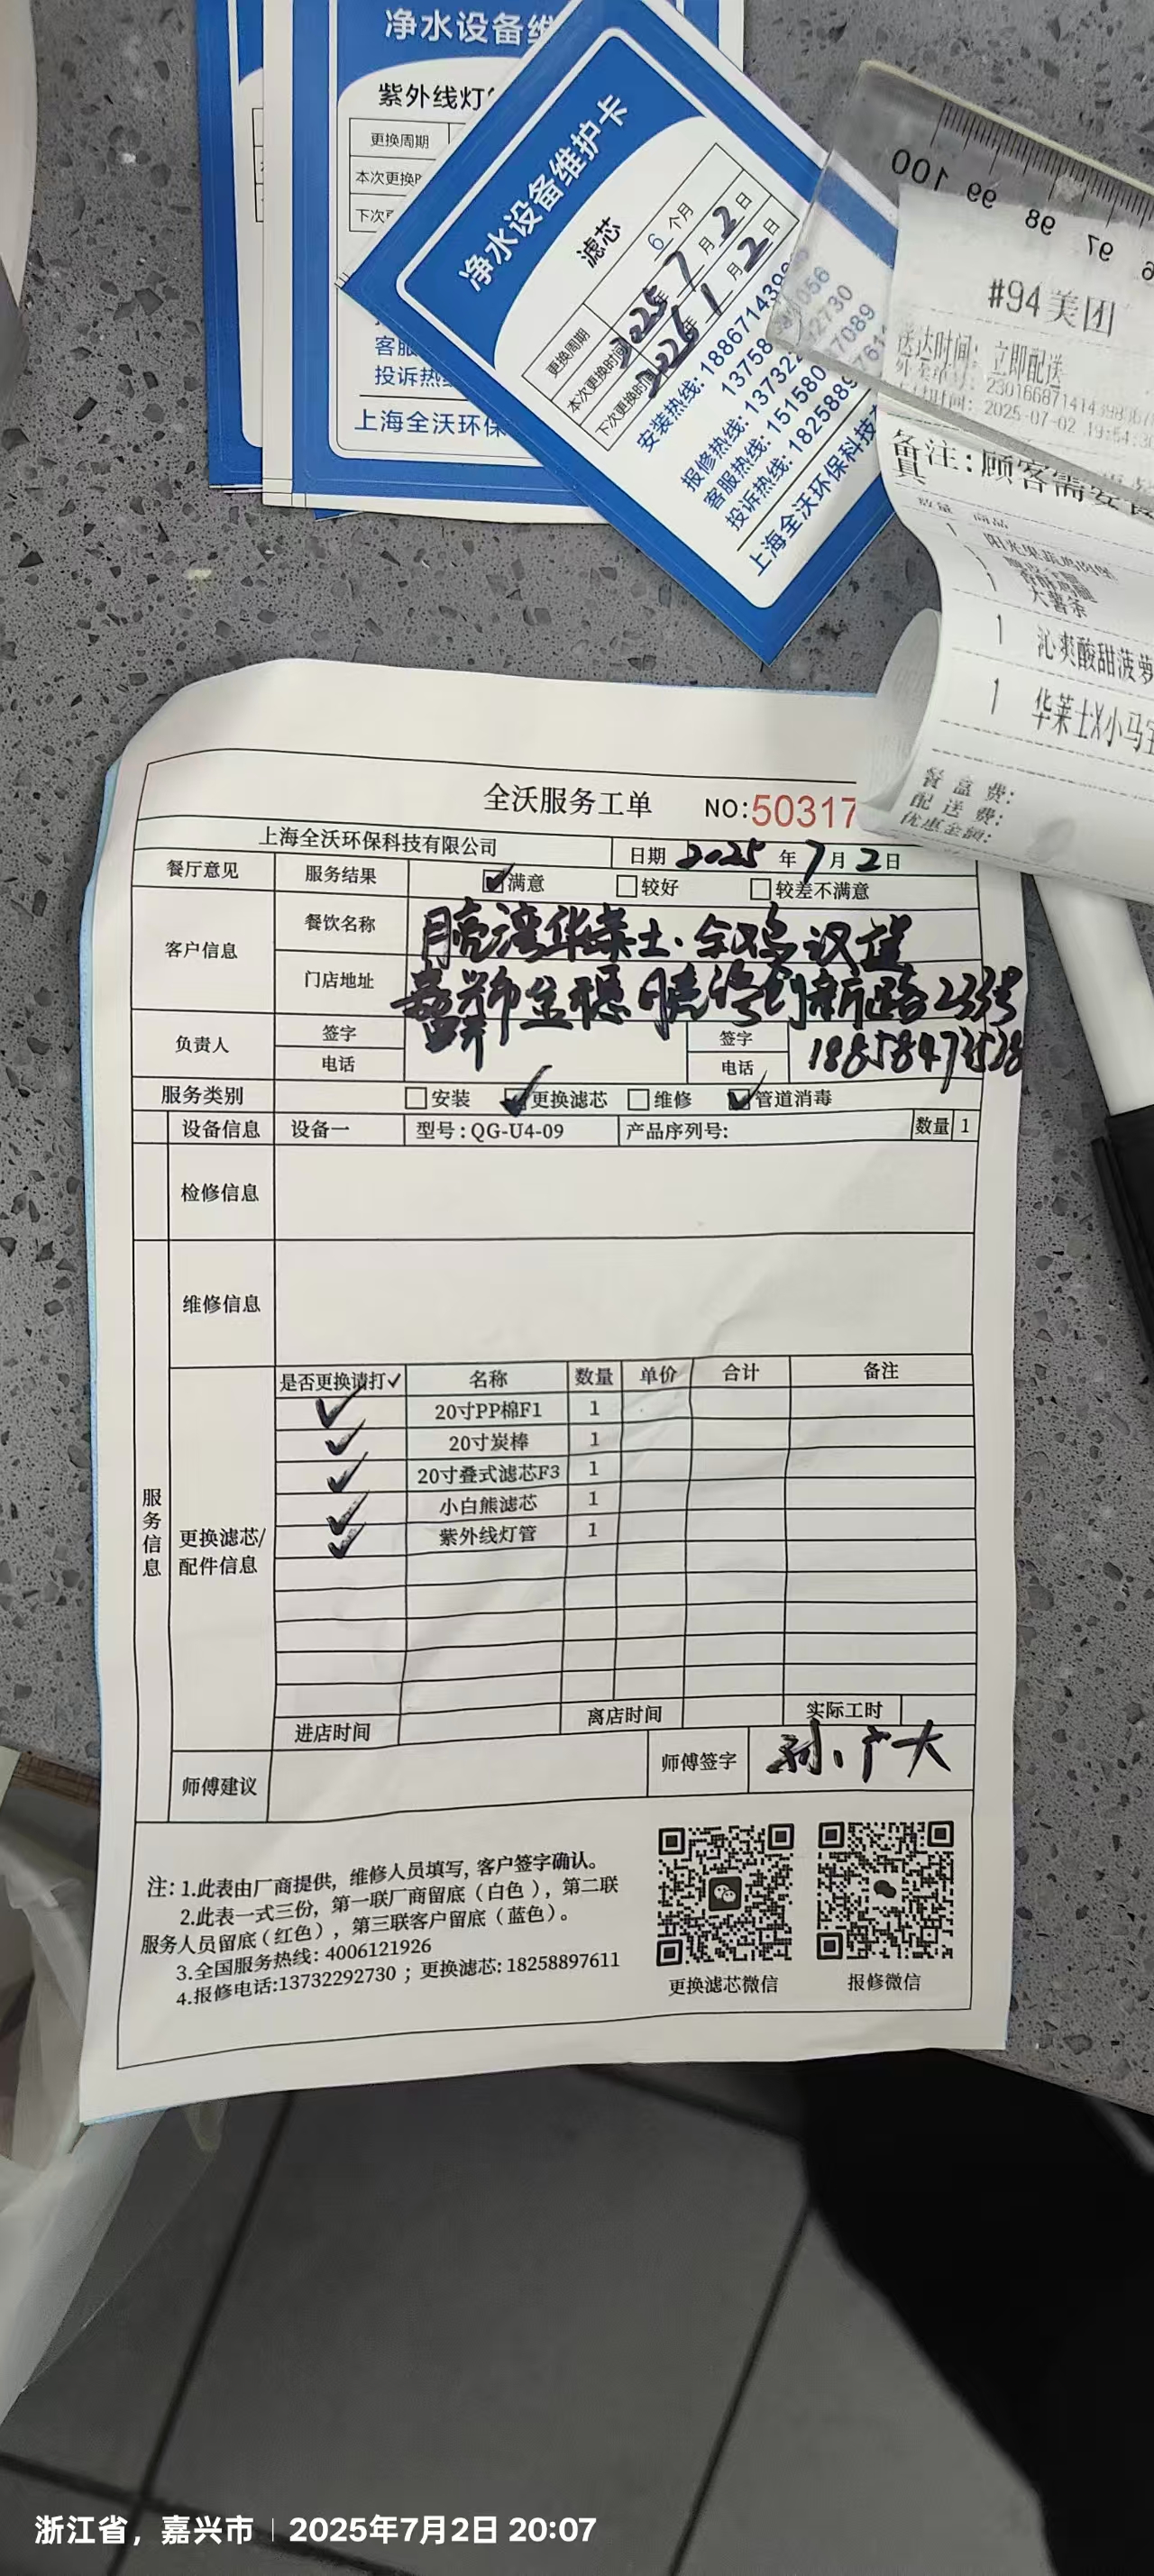 净水设备维
紫外线灯
更换周期
本次更换
下次
客服
投诉热线
上海全沃环保
净水设备维护卡
滤芯
更换周期 6 个月
本次更换时间 2025年 7 月 2 日
下次更换时间 2026年 1 月 2 日
安装热线: 188671439
13758 056
报修热线: 13732 2730
客服热线: 151580 7089
投诉热线: 1825889 761
上海全沃环保科技
100 99 98 97
#94美团
送达时间: 立即配送
2025-07-02 19:54:3
备注: 顾客需要餐
具
数量 商品
1
大薯条
1 沁爽酸甜菠萝
1 华莱士X小马宝
餐盒费:
配送费:
优惠金额:
全沃服务工单 NO:50317
上海全沃环保科技有限公司 日期 2025 年 7 月 2 日
餐厅意见 服务结果 满意 较好 较差不满意
客户信息 餐饮名称 月亮湾华莱士·全鸡汉堡
门店地址 路233号
负责人 签字 签字
电话 电话 18858473528
服务类别 安装 更换滤芯 维修 管道消毒
设备信息 设备一 型号: QG-U4-09 产品序列号: 数量 1
检修信息
维修信息
服务信息
更换滤芯/
配件信息
是否更换请打✓ 名称 数量 单价 合计 备注
✓ 20寸PP棉F1 1
✓ 20寸炭棒 1
✓ 20寸叠式滤芯F3 1
✓ 小白熊滤芯 1
✓ 紫外线灯管 1
进店时间 离店时间 实际工时
师傅建议 师傅签字 孙广大
注: 1.此表由厂商提供, 维修人员填写, 客户签字确认。
2.此表一式三份, 第一联厂商留底(白色), 第二联
服务人员留底(红色), 第三联客户留底(蓝色)。
3.全国服务热线: 4006121926
4.报修电话:13732292730 ; 更换滤芯: 18258897611
更换滤芯微信 报修微信
浙江省，嘉兴市 | 2025年7月2日 20:07